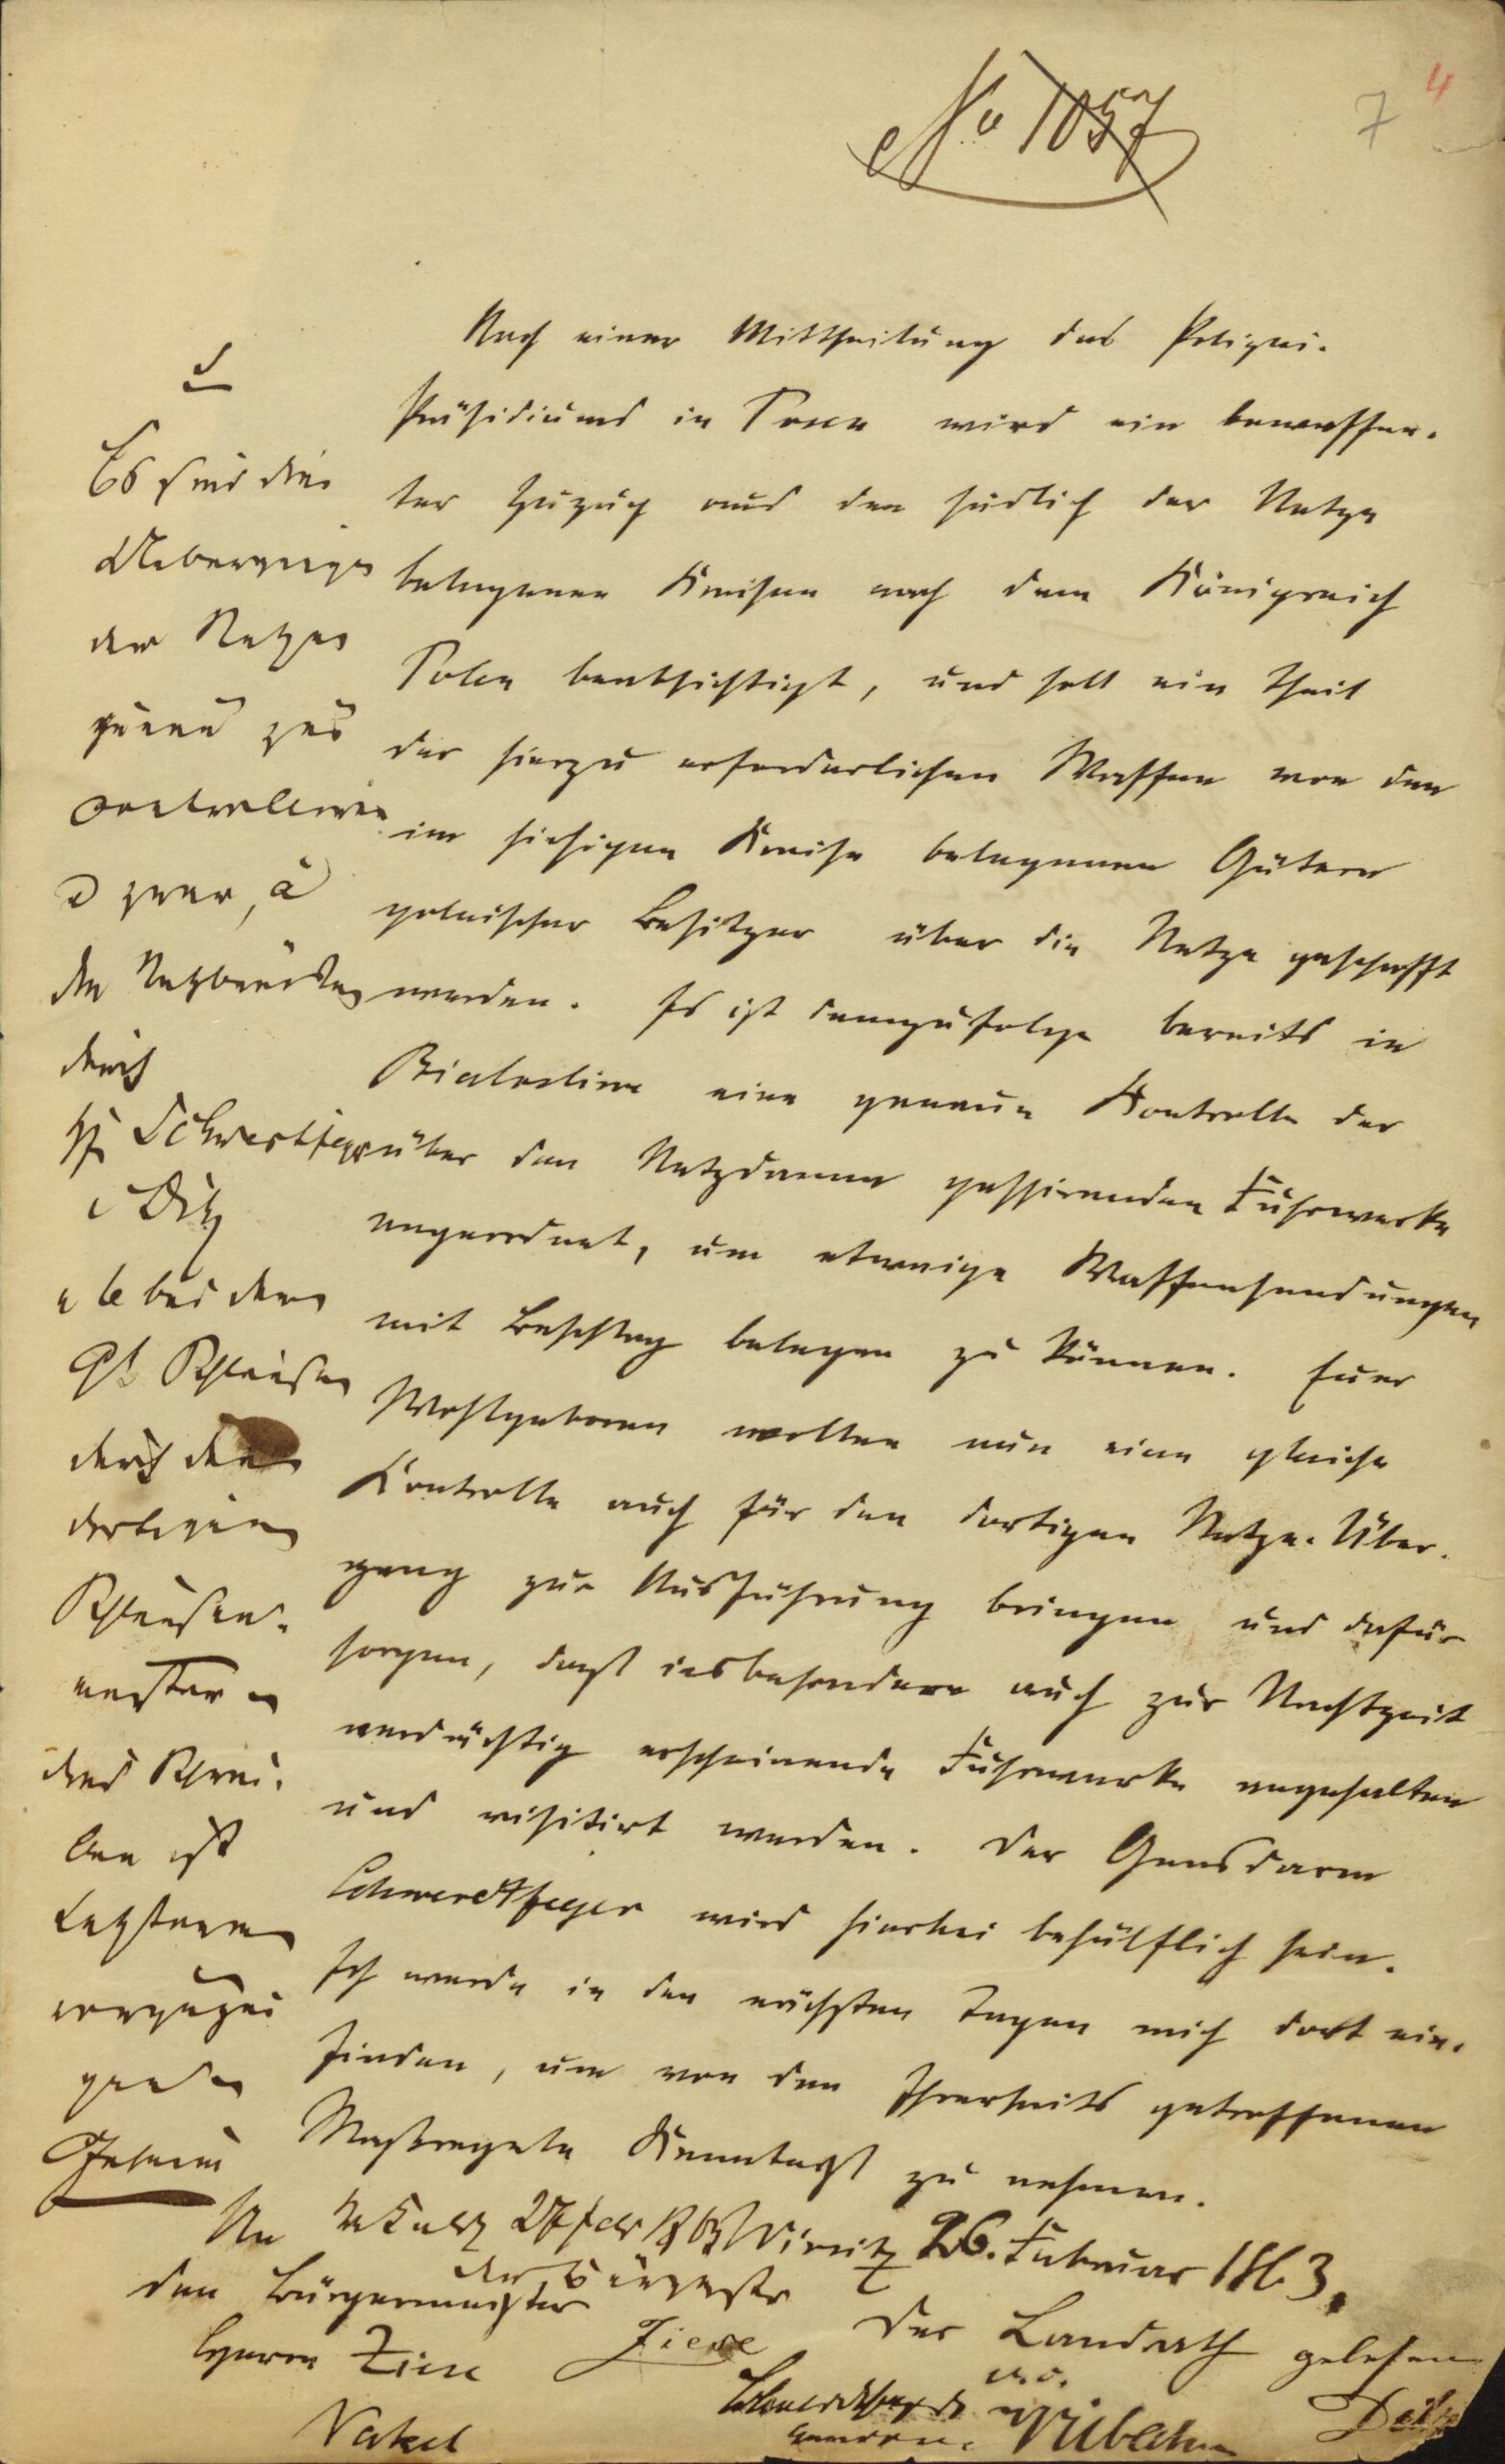 No 1057
7 4
Nach einer Mittheilung des Polizei-
Präsidiums in Posen wird ein bewaffne-
ter Zuzug aus den südlich der Netze
belegenen Kreisen nach dem Königreich
Polen beabsichtigt, und soll ein Theil
der hierzu erforderlichen Waffen von den
im hiesigen Kreise belegenen Gütern
polnischer Besitzer über die Netze geschafft
werden. Es ist demzufolge bereits in
Bialosliwe eine genaue Kontrolle der
über den Netzdamm passirenden Fuhrwerke
angeordnet, um etwaige Waffensendungen
mit Beschlag belegen zu können. Euer
Wohlgeboren wollen nun eine gleiche
Kontrolle auch für den dortigen Netze-Über-
gang zur Ausführung bringen und dafür
sorgen, daß insbesondere auch zur Nachtzeit
verdächtig erscheinende Fuhrwerke angehalten
und visitirt werden. Der Gensdarm
Schwerdtfeger wird hierbei behülflich sein.
Ich werde in den nächsten Tagen mich dort ein-
finden, um von den Ihrerseits getroffenen
Maßregeln Kenntniß zu nehmen.
Wirsitz 26. Februar 1863.
Der Landrath
An
den Bürgermeister
Herrn Ziese
Nakel
Es sind die
Uebergänge
der Netze
genau zu
controlliren
u zwar, a
den Netzbrücken
durch
Schwerdtfeger
b bei der
Schleuse
durch den
dortigen
Schleusen-
meister
das Schrei-
ben ist
Letzterem
vorzuzei
gen
Geheim
Nakel 27 Feb 63
der Bürgerm
Ziese
gelesen
Schwerdtfeger
Gensdarm